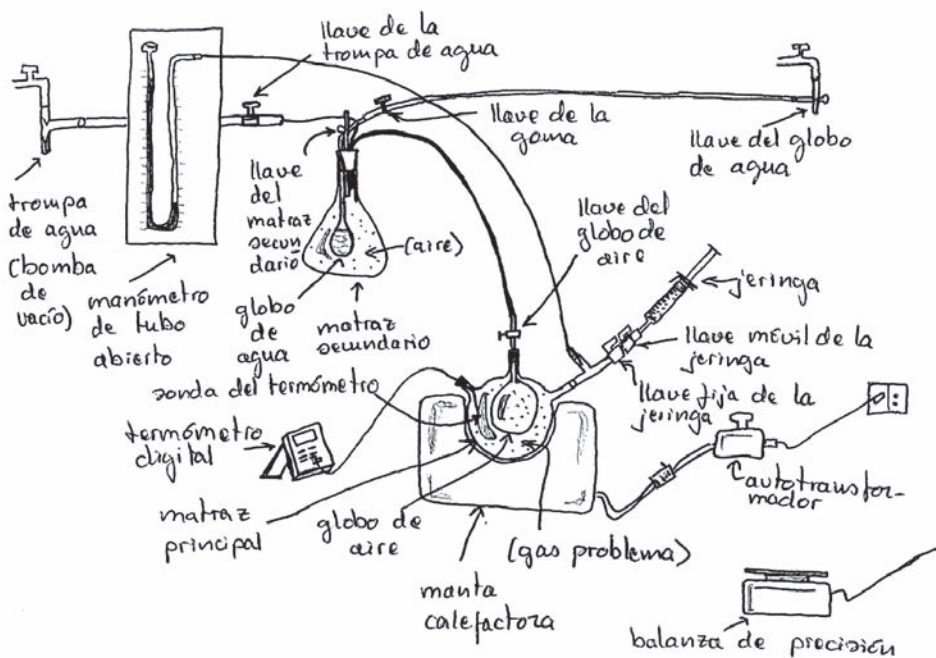 llave de la
trompa de agua
llave de la
goma
llave del globo
de agua
trompa
de agua
(bomba
de
vacío)
manómetro
de tubo
abierto
llave
del
matraz
secun
dario
(aire)
globo
de
agua
matraz
secundario
llave del
globo de
aire
jeringa
llave móvil de la
jeringa
llave fija de la
jeringa
sonda del termómetro
termómetro
digital
matraz
principal
globo de
aire
(gas problema)
manta
calefactora
autotransfor-
mador
balanza de precisión